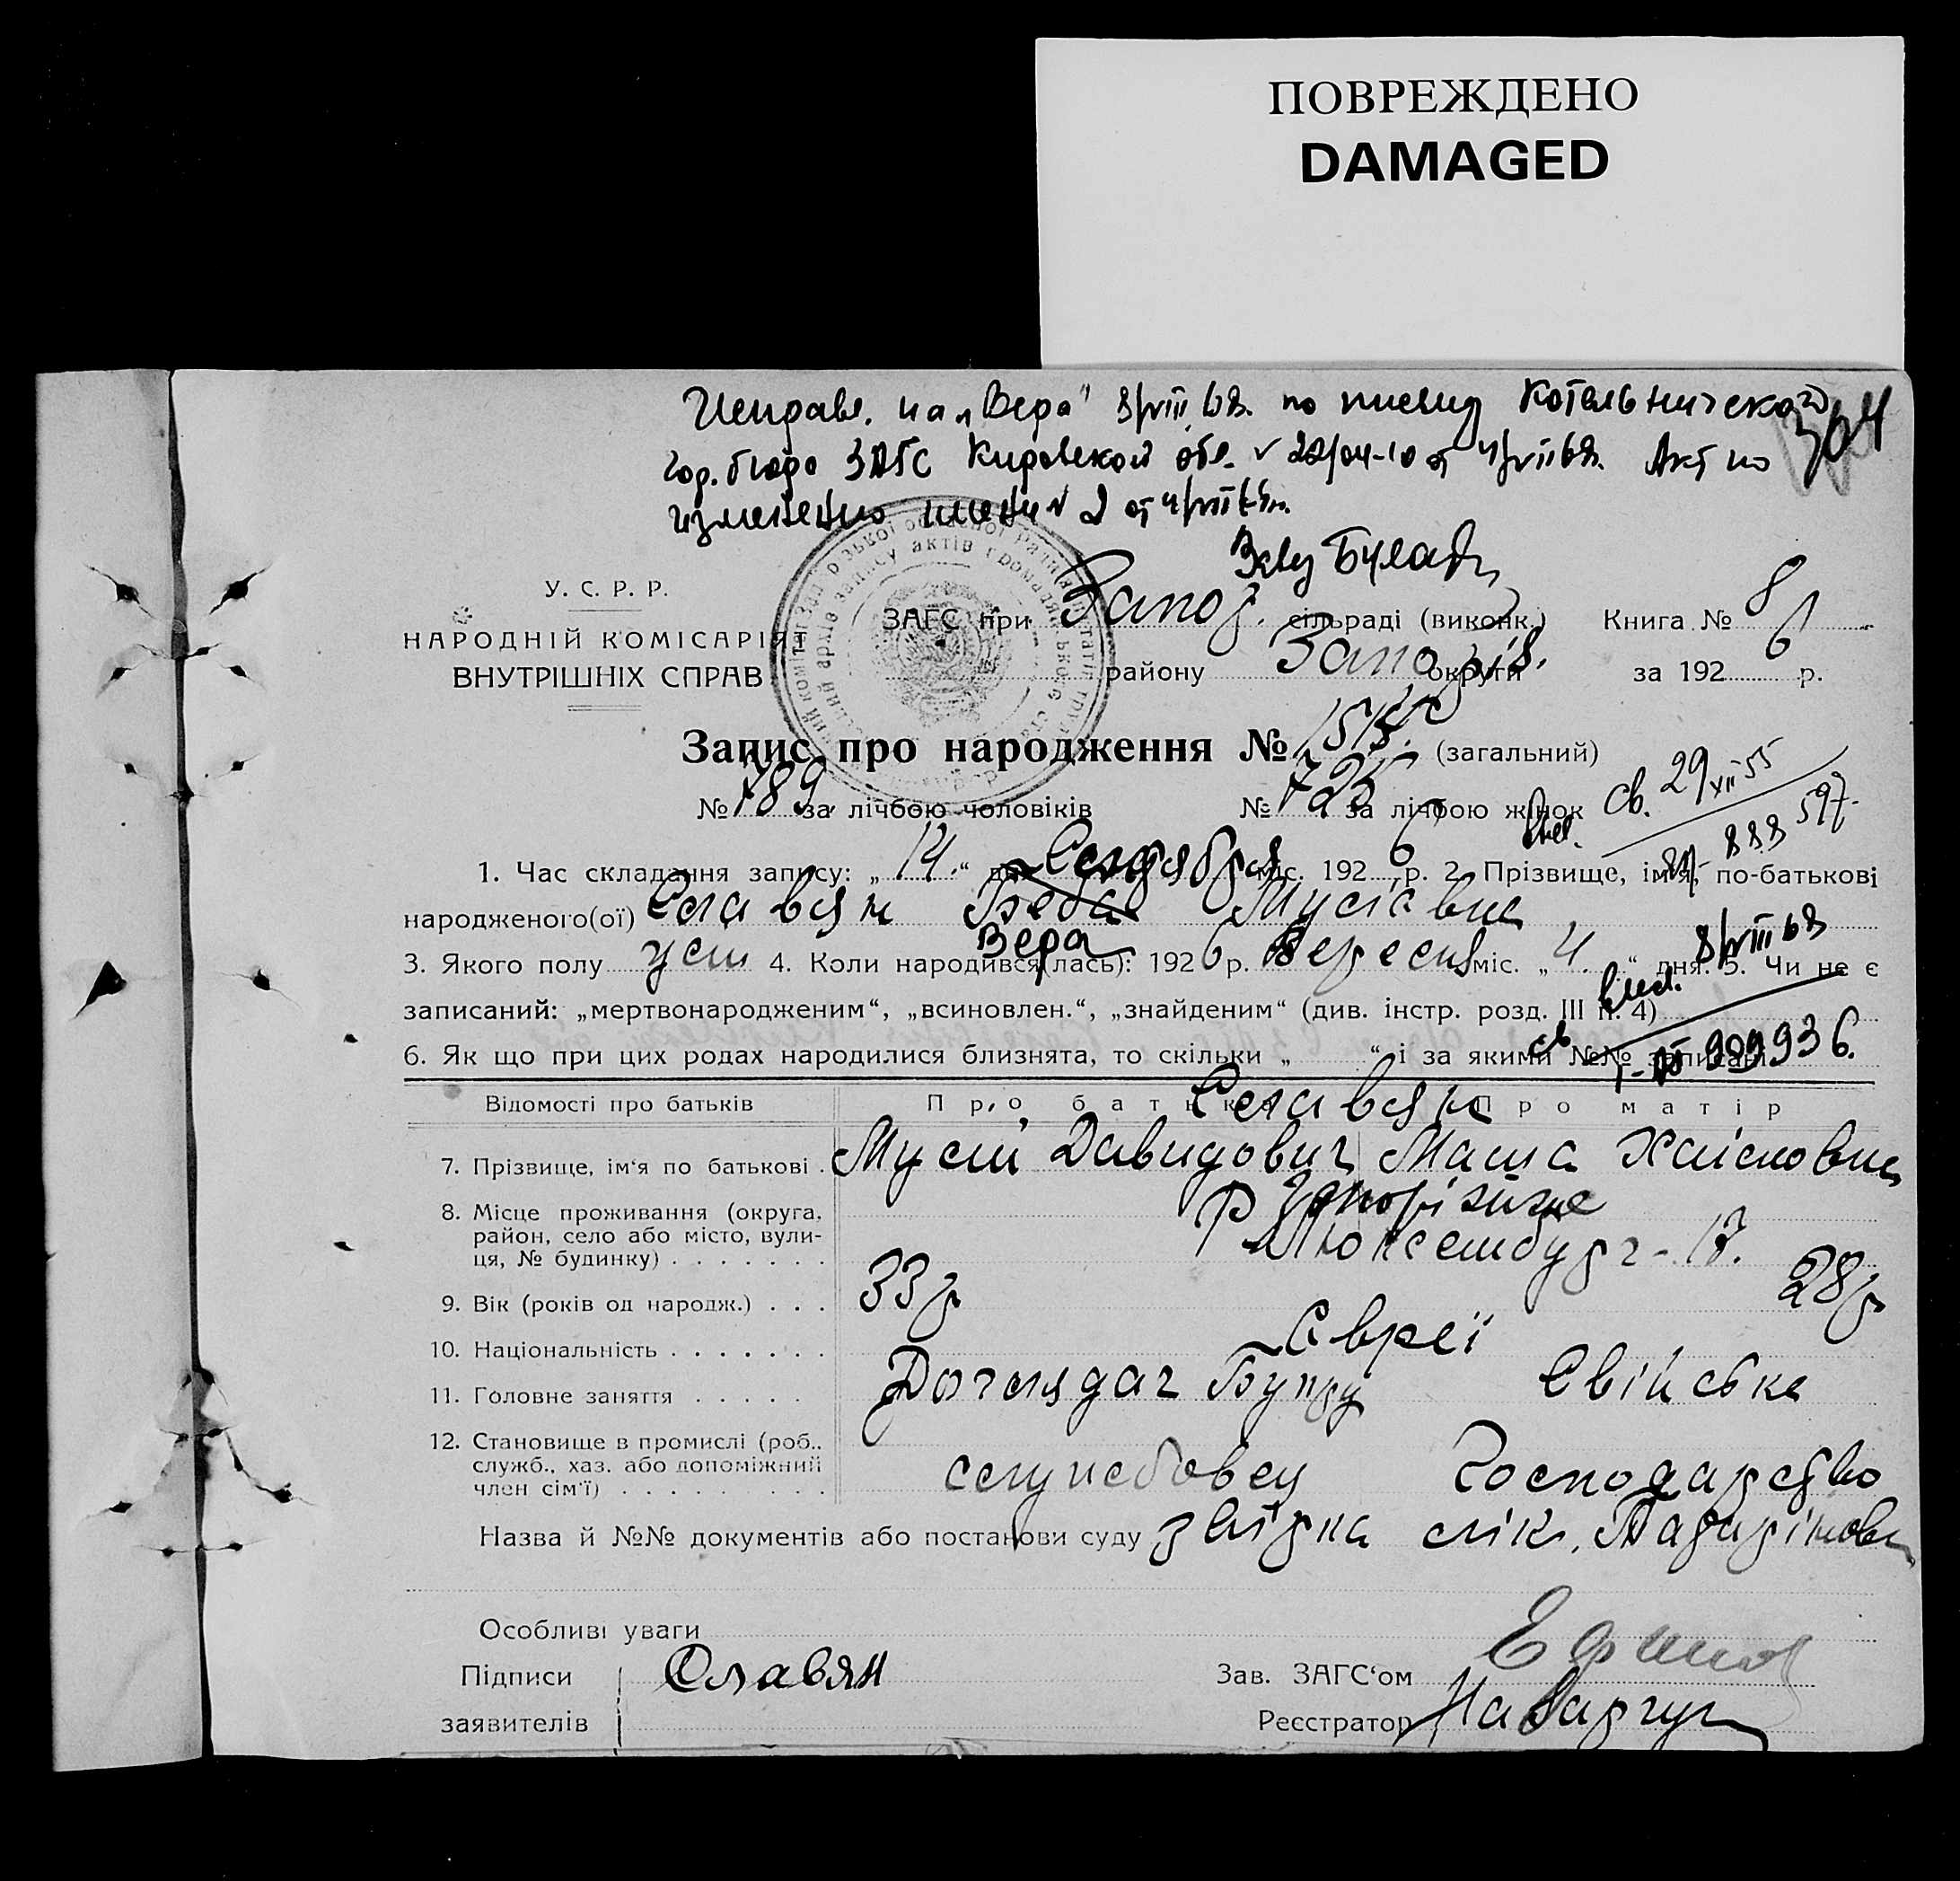 ПОВРЕЖДЕНО
DAMAGED
Исправл. на „Вера" 8/VIII 68. по письму Котельнического
гор. бюро ЗАГС Кировской обл. от Акт по
изменению имени № 2 от
304
У. С. Р. Р.
НАРОДНІЙ КОМІСАРІЯТ
ВНУТРІШНІХ СПРАВ
ЗАГС при Запоз. сільраді (виконк.) Книга № 8
району Запоріз. округи за 1926 р.
Запис про народження № 1515 (загальний)
№ 789 за лічбою чоловіків № 725 за лічбою жінок
св. 29 XII 55
597
1. Час складання запису: „14" дня Сентября міс. 1926 р. 2. Прізвище, ім'я, по-батькові
народженого(ої) Славян Мусіївна
Вера
8/VIII 68
3. Якого полу жін 4. Коли народився(лась): 1926 р. Вересня міс. „4." дня. 5. Чи не є
записаний: „мертвонародженим“, „всиновлен.“, „знайденим“ (див. інстр. розд. III п. 4)
6. Як що при цих родах народилися близнята, то скільки „ “ і за якими №№ записані
св 909936.
Відомості про батьків Про батька Про матір
Славян
7. Прізвище, ім‘я по батькові . Мусій Давидович Маша Хаімовна
8. Місце проживання (округа, район, село або місто, вулиця, № будинку) . . . . . . . Запоріжже
Р Люксембург - 17.
9. Вік (років од народж.) . . . 33 р 28 р
10. Національність . . . . . . . Євреї
11. Головне заняття . . . . . Доглядач Бупру Свійське
12. Становище в промислі (роб., служб., хаз. або допоміжний член сім‘ї) . . . . . . . . . службовец Господарство
Назва й №№ документів або постанови суду звірка лік.
Особливі уваги
Підписи Славян Зав. ЗАГС‘ом
заявителів Реєстратор